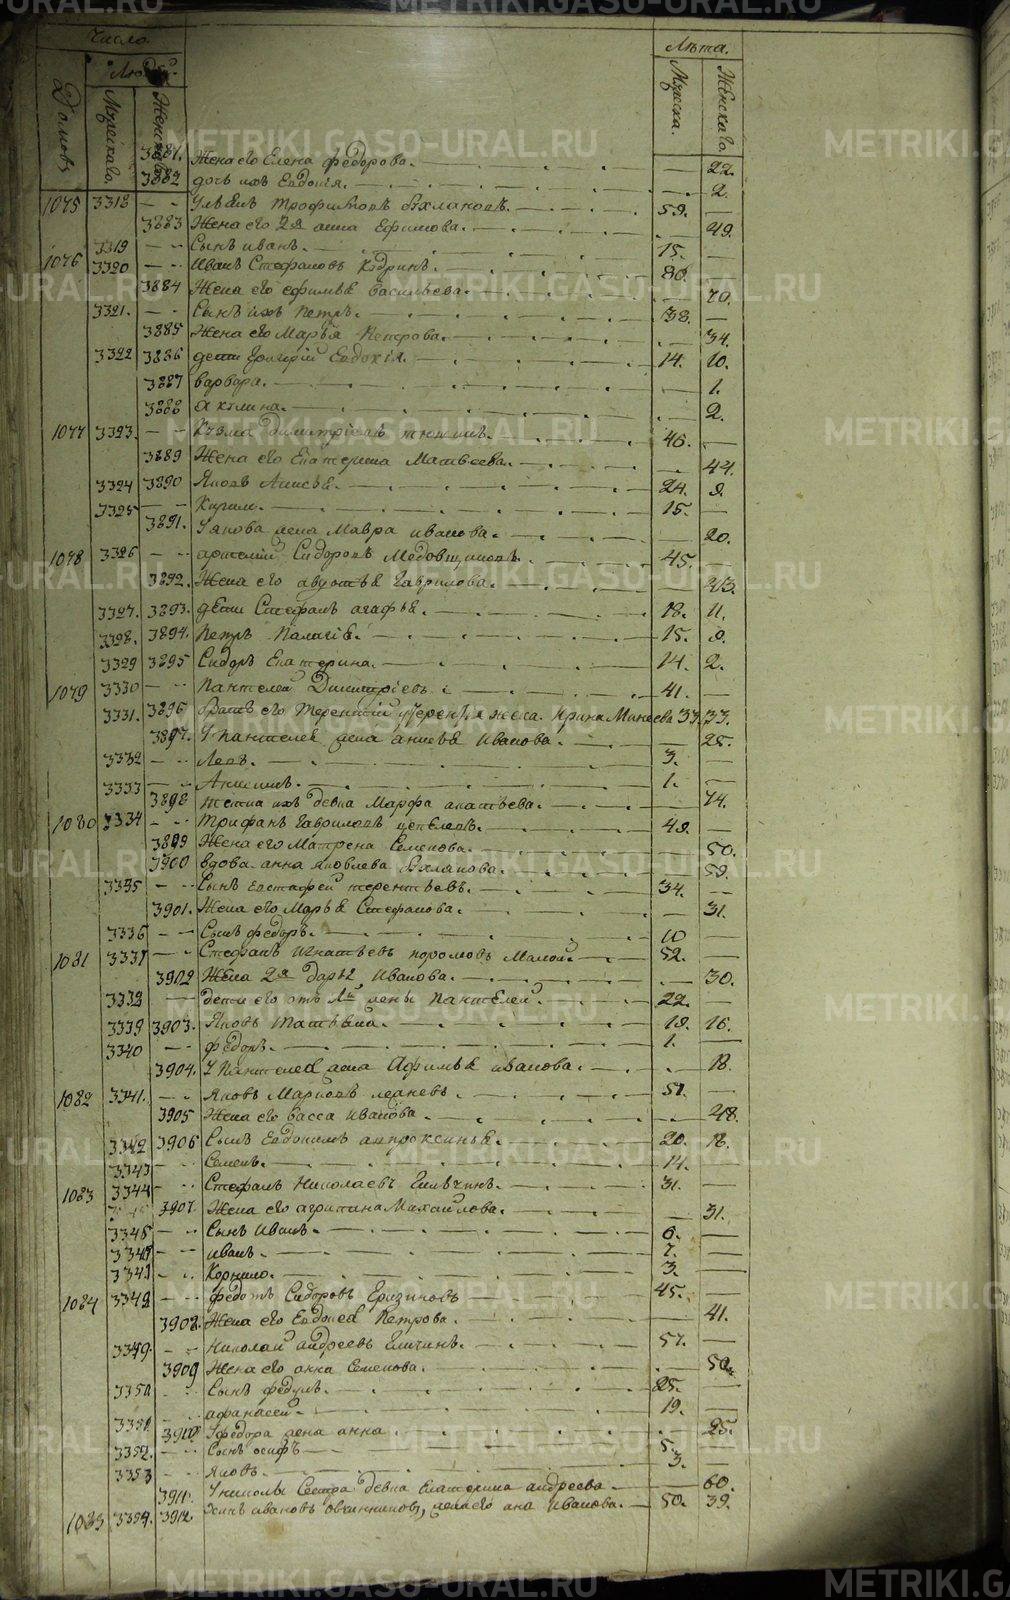 Число
Людей
Лѣта.
Домовъ
Мужеска.
Женскаго.
3881. Жена его Елена федорова. 22.
3882 дочь ихъ Евдокія. 2.
1075 3318 Трофимовъ 59.
3883 Жена его 2я анна Ефимова. 49.
3319 Сынъ иванъ. 15.
1076 3320 Иванъ Стефановъ Кѫдринъ. 80.
3884 Жена его ефимья Васильева. 70.
3321. Сынъ ихъ Петръ. 38.
3885 Жена его Марья Петрова. 34.
3322 3886 дети Григорій Евдокія. 14. 10.
3887 варвара. 1.
3888 акулина. 2.
1077 3323. Кузма Димитріевъ 46.
3889 Жена его Екатерина Матвеева. 44.
3324 3890 Яковъ Анисья. 24. 9.
3325 Кирил. 15.
3891. У якова жена Мавра иванова. 20.
1078 3326 артемій Сидоровъ Медовщиковъ. 45.
3892. Жена его авдотья Гаврилова. 43.
3327. 3893. дѣти Стефанъ агафья. 18. 11.
3328. 3894. Петръ Палагія. 15. 9.
3329 3895 Сидоръ Екатерина. 14. 2.
1079 3330 Пантелей Димитріевъ. 41.
3331. 3896 братъ его Терентій у Терентья жена Ирина Минеева 33. 33.
3897. У Пантелея жена анисья Иванова. 25.
3332 Левъ. 3.
3333 Акимъ. 1.
3898 тетка ихъ девка Марфа анатьева. 74.
1080 3334 Трифанъ Гавриловъ 49.
3899 Жена его Матрена Семенова. 50.
3900 вдова анна Яковлева 59.
3335 Сынъ евстафей терентьевъ. 34.
3901. Жена его Марья Стефанова. 31.
3336 Сынъ федоръ. 10
1081 3337 Стефанъ Игнатьевъ 52.
3902 Жена 2я дарья Иванова. 30.
3338 дети его отъ 1й жены Пантелей. 22.
3339 3903. Яковъ Татьяна. 19. 16.
3340 федоръ. 1.
3904. У Пантелея жена Афимья иванова. 18.
1082 3341. Яковъ Марковъ 51.
3905 Жена его Васса Иванова. 48.
3342 3906 Сынъ Евдокимъ 20. 18.
3343 Семенъ. 14.
1083 3344 Стефанъ Николаевъ 31.
3907. Жена его агрипина Михайлова. 31.
3345 Сынъ Иванъ. 6.
иванъ. 7.
Корнило. 3.
1084 3348 федотъ Сидоровъ 45.
3908. Жена его Евдокея Петрова. 41.
3349. Николай андреевъ 57.
3909 Жена его анна Семенова. 50.
3350 Сынъ федулъ. 25.
3351 афанасей. 19.
3910 У федора жена анна. 25.
3352. Сынъ осифъ 5.
3353 Яковъ. 3.
3911. У николы Сестра девка Екатерина андреева 60.
1085 3354. 3912. ивановъ овчинниковъ, жена его ана Иванова. 50. 39.
METRIKI.GASO-URAL.RU